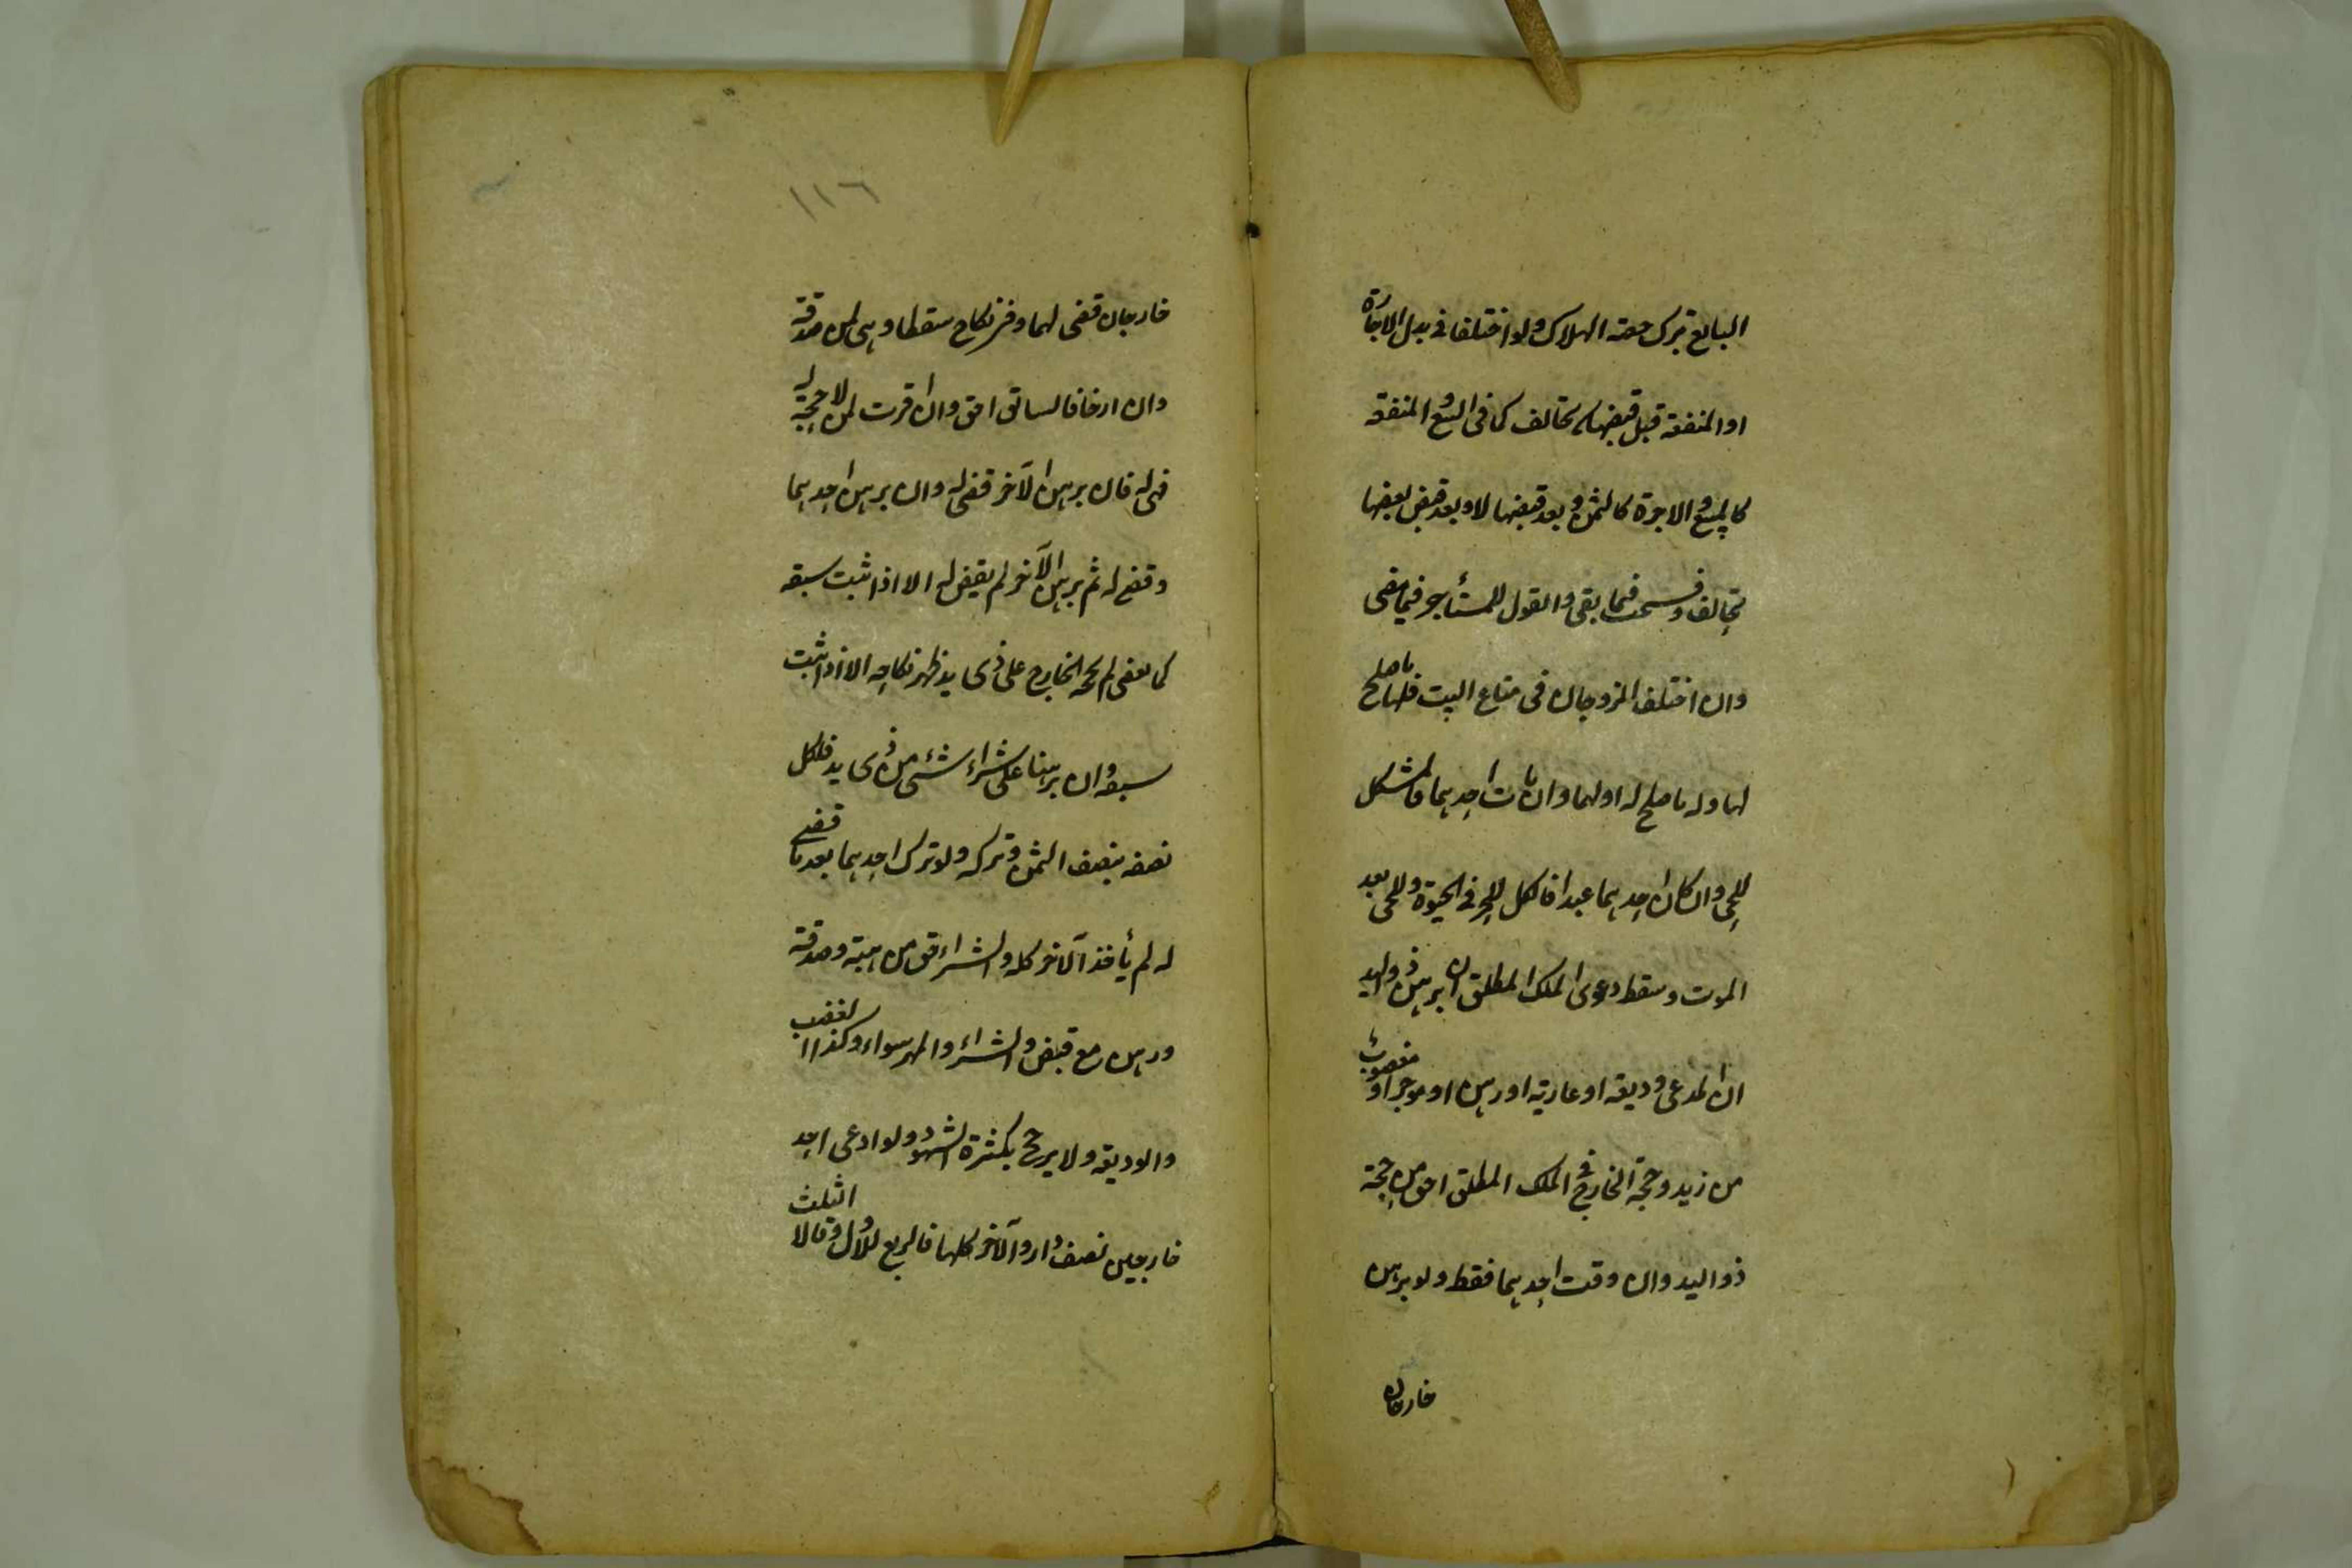 البايع بترك حصة الهلاك ولو اختلفا فى بدل الاجارة
او المنفعة قبل قبضها تحالف كما فى البيع و المنفعة
كالمبيع والاجرة كالثمن و بعد قبضها لا وبعد قبض بعضها
تحالف وفسخت فيما بقى والقول للمستأجر فيما مضى
وان اختلف الزوجان فى متاع البيت فلها ما صلح
لها وله ما صلح له او لهما وان مات احدهما فالمشكل
للحى وان كان احدهما عبدا فالكل للحر فى الحيوة وللحى بعد
الموت وسقط دعوى الملك المطلق ان برهن ذو اليد
ان المدعى وديعة او عارية او رهن او موجر او مغصوب
من زيد وحجة الخارج فى الملك المطلق احق من حجة
ذو اليد وان وقت احدهما فقط ولو برهن
خارجان
١١٦
خارجان قضى لهما وفى نكاح سقطا وهى لمن صدقته
وان ارخا فالسابق احق وان اقرت لمن لا حجة له
فهى له فان برهن الآخر قضى له وان برهن احدهما
وقضى له ثم برهن الآخر لم يقض له الا اذا ثبت سبقه
كما لم يقض لحجة الخارج على ذى يد ظهر نكاحه الا اذا ثبت
سبقه وان برهنا على شراء شئ من ذى يد فلكل
نصفه بنصف الثمن وتركه ولو ترك احدهما بعد ما قضى
له لم يأخذ الآخر كله والشراء احق من هبة وصدقة
ورهن مع قبض والشراء والمهر سواء وكذا الغصب
والوديعة ولا يرجح بكثرة الشهود ولو ادعى احد
خارجين نصف دار والآخر كلها فالربع للاول وقالا الثلث